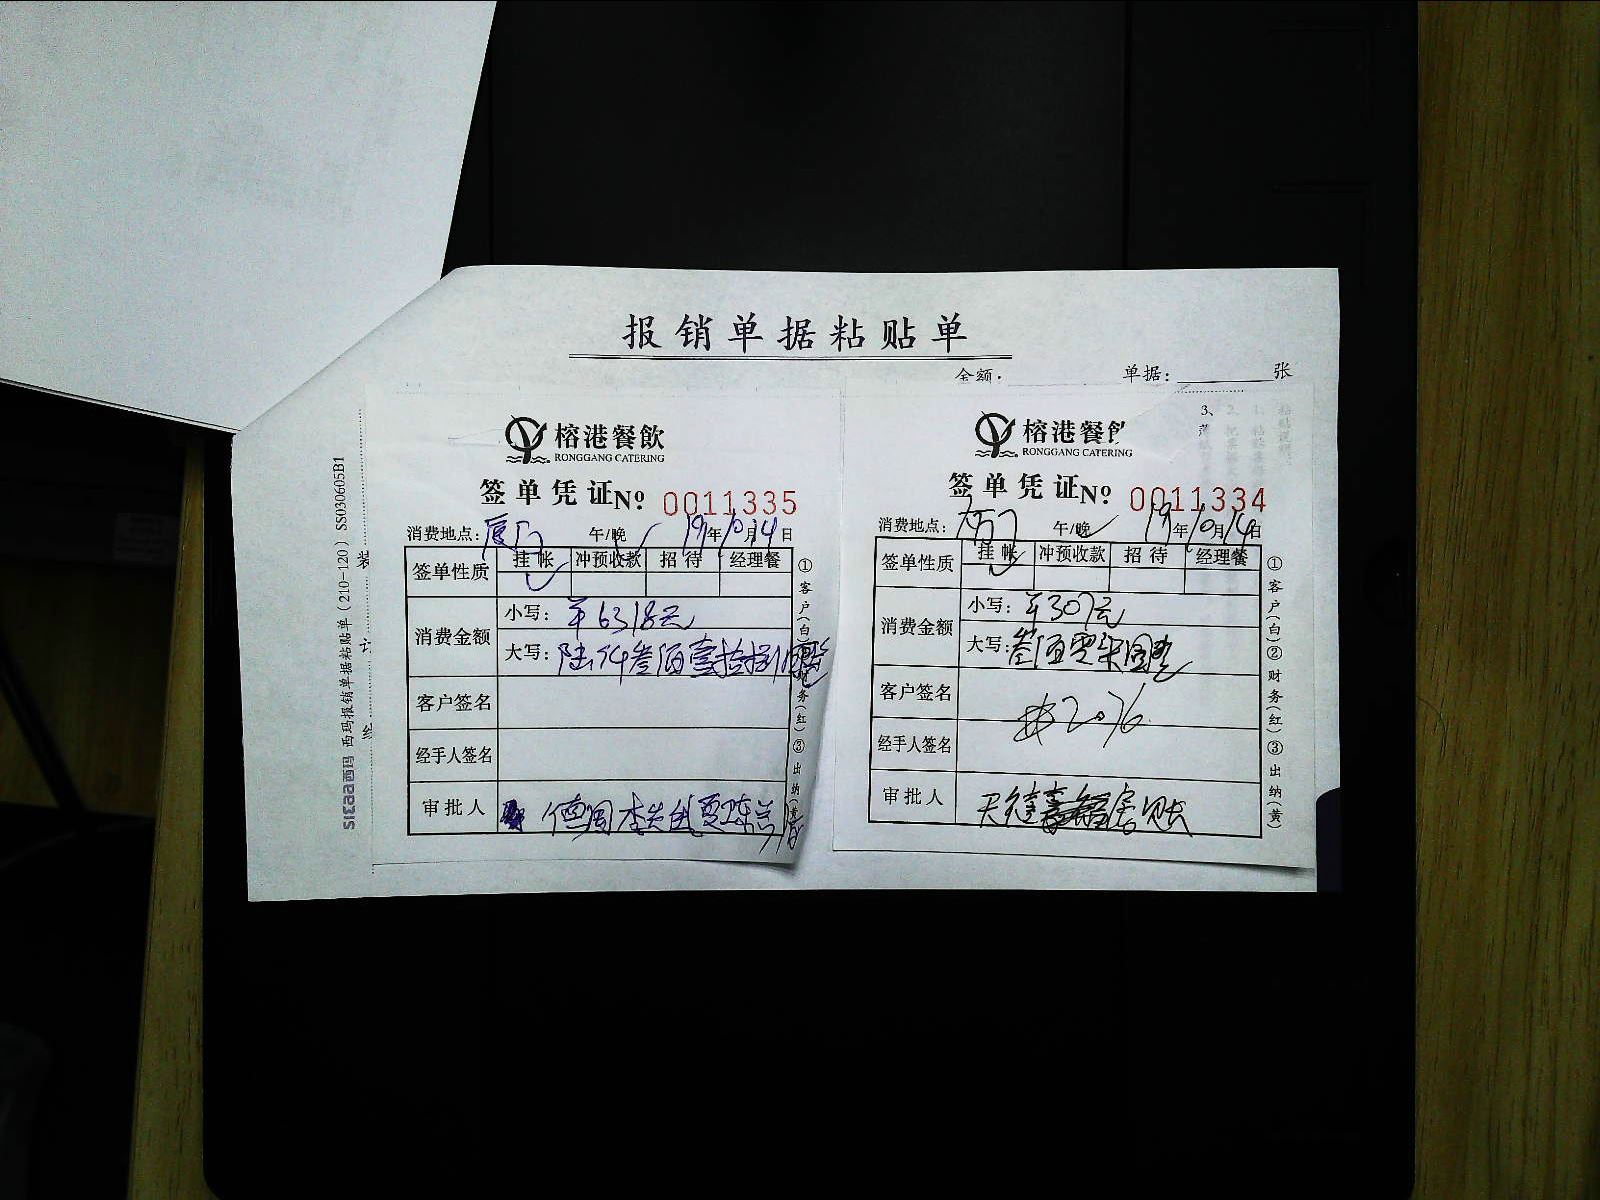 报销单据粘贴单
金额:
单据: 张
SISAA西玛 西玛报销单据粘贴单（210-120）SS030605B1
装 订 线
榕港餐飲
RONGGANG CATERING
签单凭证No 0011335
消费地点: 厦门 午/晚 ✓ 19年10月14日
签单性质 挂帐 冲预收款 招待 经理餐
✓
消费金额 小写: ￥6318元
大写: 陆仟叁佰壹拾捌圆整
客户签名
经手人签名
审批人
①客户(白)②财务(红)③出纳(黄)
榕港餐飲
RONGGANG CATERING
签单凭证No 0011334
消费地点: 厦门 午/晚 ✓ 19年10月14日
签单性质 挂帐 冲预收款 招待 经理餐
✓
消费金额 小写: ￥307元
大写: 叁佰零柒圆整
客户签名 #2076
经手人签名
审批人
①客户(白)②财务(红)③出纳(黄)
3、